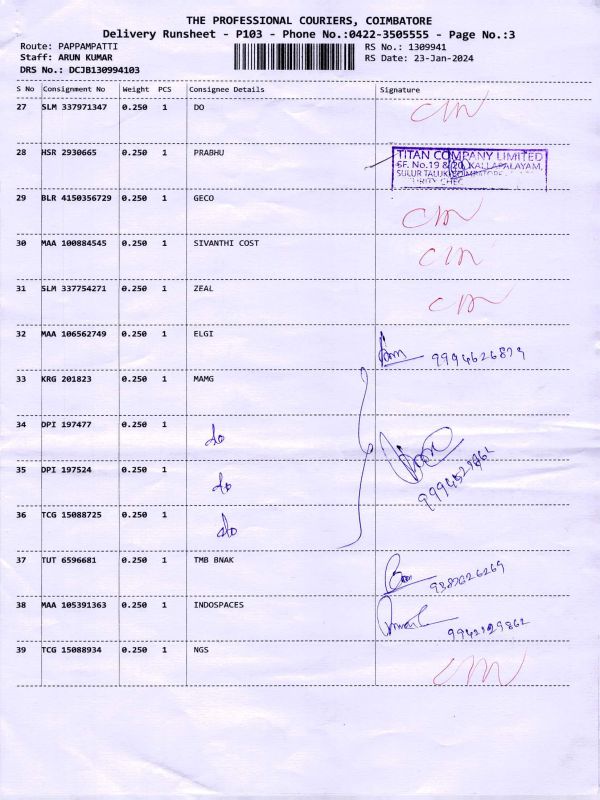 THE PROFESSIONAL COURIERS, COIMBATORE
Delivery Runsheet - P103 - Phone No.:0422-3505555 - Page No.:3
Route: PAPPAMPATTI
RS No.: 1309941
Staff: ARUN KUMAR
RS Date: 23-Jan-2024
DRS No.: DCJB130994103
S No Consignment No Weight PCS Consignee Details Signature
27 SLM 337971347 0.250 1 DO
28 HSR 2930665 0.250 1 PRABHU
TITAN COMPANY LIMITED
SF. No.19 & 20, KALLAPALAYAM,
SULUR TALUK COIMBATORE
29 BLR 4150356729 0.250 1 GECO
30 MAA 100884545 0.250 1 SIVANTHI COST
31 SLM 337754271 0.250 1 ZEAL
32 MAA 106562749 0.250 1 ELGI
33 KRG 201823 0.250 1 MAMG
34 DPI 197477 0.250 1 do
35 DPI 197524 0.250 1 do
36 TCG 15088725 0.250 1 do
37 TUT 6596681 0.250 1 TMB BNAK
38 MAA 105391363 0.250 1 INDOSPACES
39 TCG 15088934 0.250 1 NGS